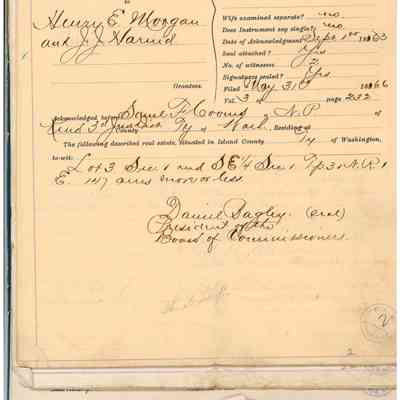 to
Wife examined separate? no
Henry E. Morgan
Does Instrument say single? no
and J. J. Harned
Date of Acknowledgment Sept 1st 1863
Seal attached? Yes
No. of witnesses 2
Signatures sealed? Yes
Grantees.
Filed May 31st 1866
Vol. 3 page 232
Acknowledged before N.P. of
County Ty of Wash. Residing at
The following described real estate, situated in Island County Ty of Washington,
to-wit:
Lot 3 Sec. 1 and SE 1/4 Sec. 1 Tp 31 N. R. 1
E. 147 acres more or less.
Daniel Bagley. (Seal)
President of the
Board of Commissioners.
2
2